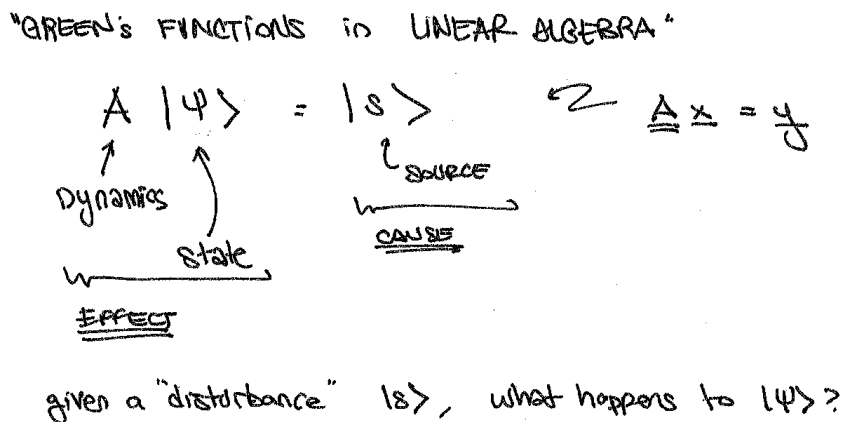 "GREEN's FUNCTIONS in LINEAR ALGEBRA"
A |ψ> = |s> A x = y
Dynamics
SOURCE
State
CAUSE
EFFECT
given a "disturbance" |s>, what happens to |ψ>?